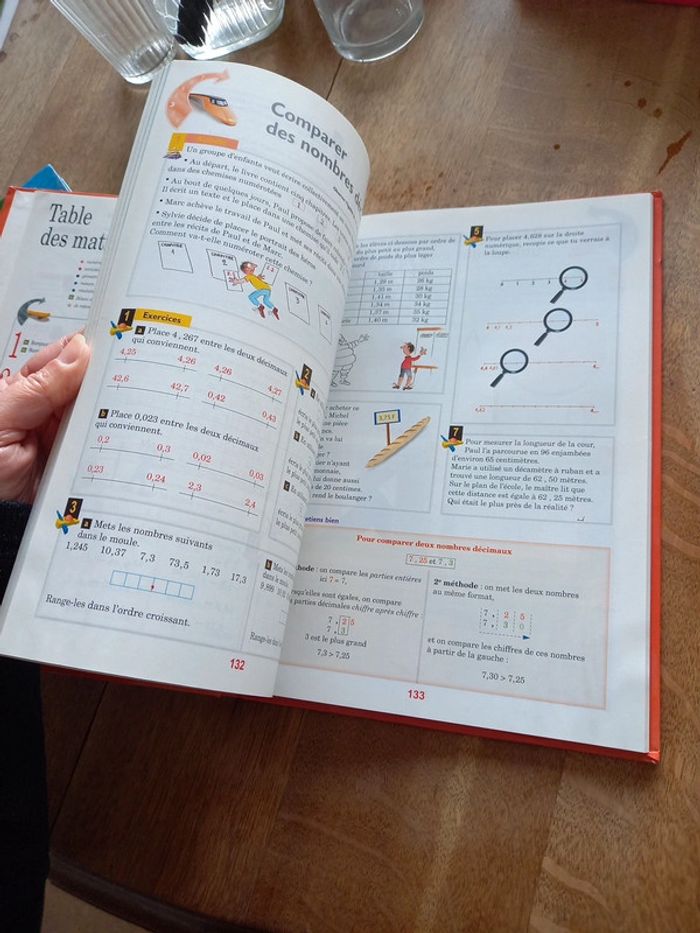 Table
des mat
1
Comparer
des nombres
Un groupe d'enfants veut écrire collectivement
• Au départ, le livre contient cinq chapitres.
dans des chemises numérotées
• Au bout de quelques jours, Paul propose de
Il écrit un texte et le place dans une chemise
• Marc achève le travail de Paul et met ses récits
• Sylvie décide de placer le portrait des héros
entre les récits de Paul et de Marc.
Comment va-t-elle numéroter cette chemise ?
1 Exercices
a Place 4, 267 entre les deux décimaux
qui conviennent.
4,25 4,26 4,26 4,27
42,6 42,7 0,42 0,43
b Place 0,023 entre les deux décimaux
qui conviennent.
0,2 0,3 0,02 0,03
0,23 0,24 2,3 2,4
3
a Mets les nombres suivants
dans le moule.
1,245 10,37 7,3 73,5 1,73 17,3
Range-les dans l'ordre croissant.
132
2
écris le
le plus
b
Mets les
dans le
Range-les dan
taille poids
1,29 m 26 kg
1,35 m 28 kg
1,41 m 35 kg
1,34 m 34 kg
1,37 m 35 kg
1,40 m 32 kg
acheter ce
, Michel
ne pièce
3,75 F
n va lui
nier n'ayant
monnaie,
lui donne aussi
s de 20 centimes.
rend le boulanger ?
5
Pour placer 4,628 sur la droite
numérique, recopie ce que tu verrais à
la loupe.
7
Pour mesurer la longueur de la cour,
Paul l'a parcourue en 96 enjambées
d'environ 65 centimètres.
Marie a utilisé un décamètre à ruban et a
trouvé une longueur de 62 , 50 mètres.
Sur le plan de l'école, le maître lit que
cette distance est égale à 62 , 25 mètres.
Qui était le plus près de la réalité ?
etiens bien
Pour comparer deux nombres décimaux
7 , 25 et 7 , 3
hode : on compare les parties entières
ici 7 = 7,
rsqu'elles sont égales, on compare
s parties décimales chiffre après chiffre :
7 , 2 5
7 , 3
3 est le plus grand
7,3 > 7,25
2e méthode : on met les deux nombres
au même format,
7 , 2 5
7 , 3 0
et on compare les chiffres de ces nombres
à partir de la gauche :
7,30 > 7,25
133